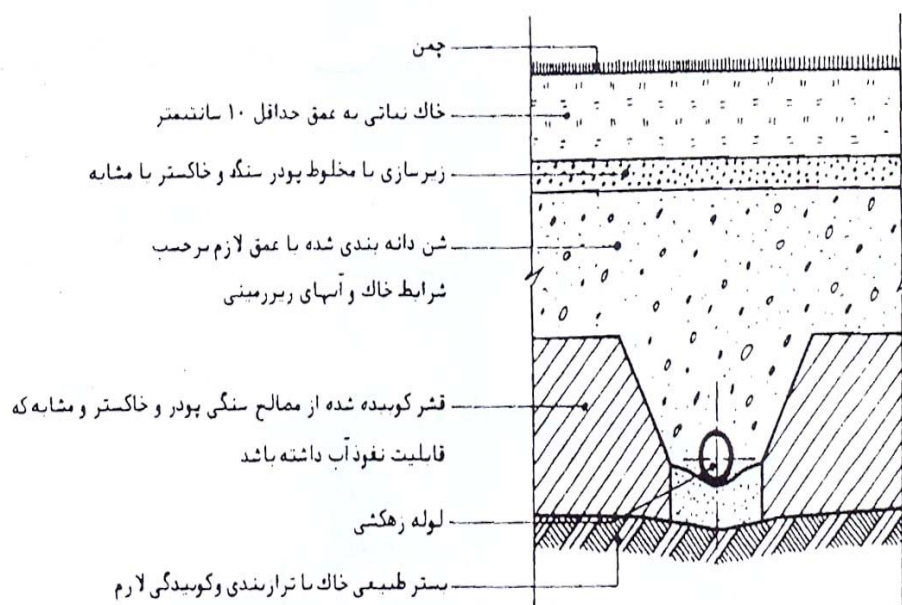 چمن
خاك نباتی به عمق حداقل ۱۰ سانتیمتر
زیرسازی با مخلوط پودر سنگ و خاکستر یا مشابه
شن دانه بندی شده با عمق لازم برحسب
شرایط خاك و آبهای زیرزمینی
قشر کوبیده شده از مصالح سنگی پودر و خاکستر و مشابه که
قابلیت نفوذ آب داشته باشد
لوله زهکشی
بستر طبیعی خاك با ترازبندی و کوبیدگی لازم